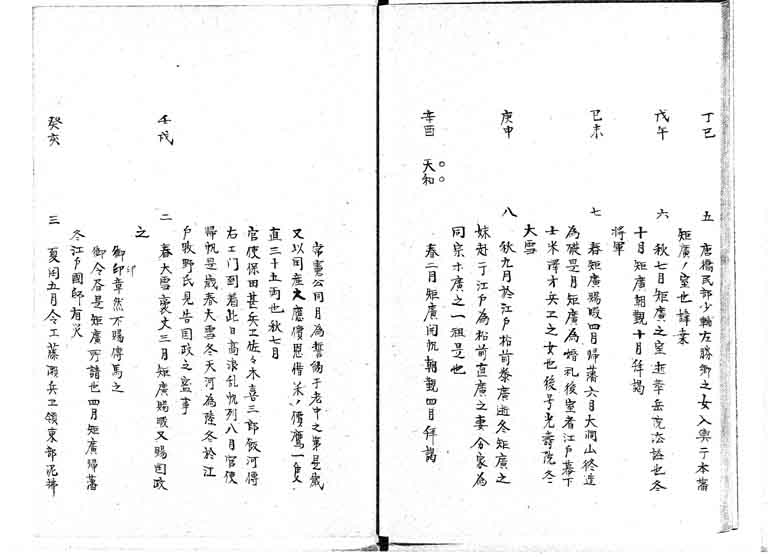 丁巳 五 唐橋民部少輔左勝卿之女入輿于本藩
矩廣ノ室也諱幸
戊午 六 秋七月矩廣之室逝華岳院 也冬
十月矩廣朝覲十月拝謁
將軍
己未 七 春矩廣賜暇四月歸藩六月大澗山終
為礙是月矩廣為婚礼後室者江戸幕下
士米澤才兵卫之女也後号光壽院冬
大雪
庚申 八 秋九月於江戸松前泰廣逝冬矩廣之
妹赴于江戸為松前直廣之妻 今家為
同宗 廣之一祖是也
辛酉 天和 春二月矩廣開帆朝覲四月拝謁
常憲公同月為誓 于老中之第是歳
又以同産 應償恩借 償鷹一隻
直三十五両也秋七月
官使保田甚兵卫佐々木喜三郎飯河傳
右卫门到着此日高浪乱帆列八月官使
歸帆是歳春大雪冬天河為陸冬於江
戸牧野氏見告國政之 事
壬戌 二 春大雪 丈三月矩廣賜暇又賜國政
之
御印章然不賜傳馬之
印
御令 是矩廣所請也四月矩廣歸藩
冬江戸國邸有災
癸亥 三 夏閏五月令工藤 兵卫領東部